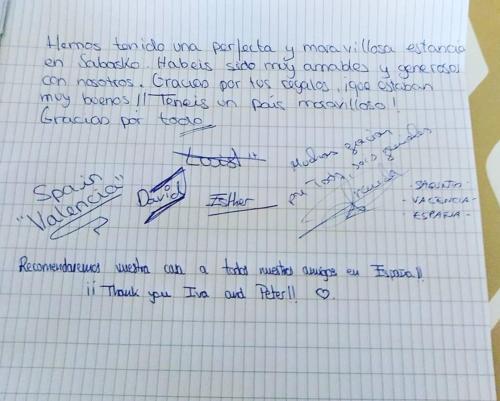 Hemos tenido una perfecta y maravillosa estancia
en Sabasko. Habeis sido muy amables y generosos
con nosotros. Gracias por tus regalos, ¡que estaban
muy buenos!! Teneis un país maravilloso!
Gracias por todo.
Muchas gracias
por todo, sois geniales
Spain
"Valencia"
David
Esther
- SAGUNTO -
- VALENCIA -
- ESPAÑA -
Recomendaremos vuestra casa a todos nuestros amigos en España!!
¡¡Thank you Iva and Peter!! ♡